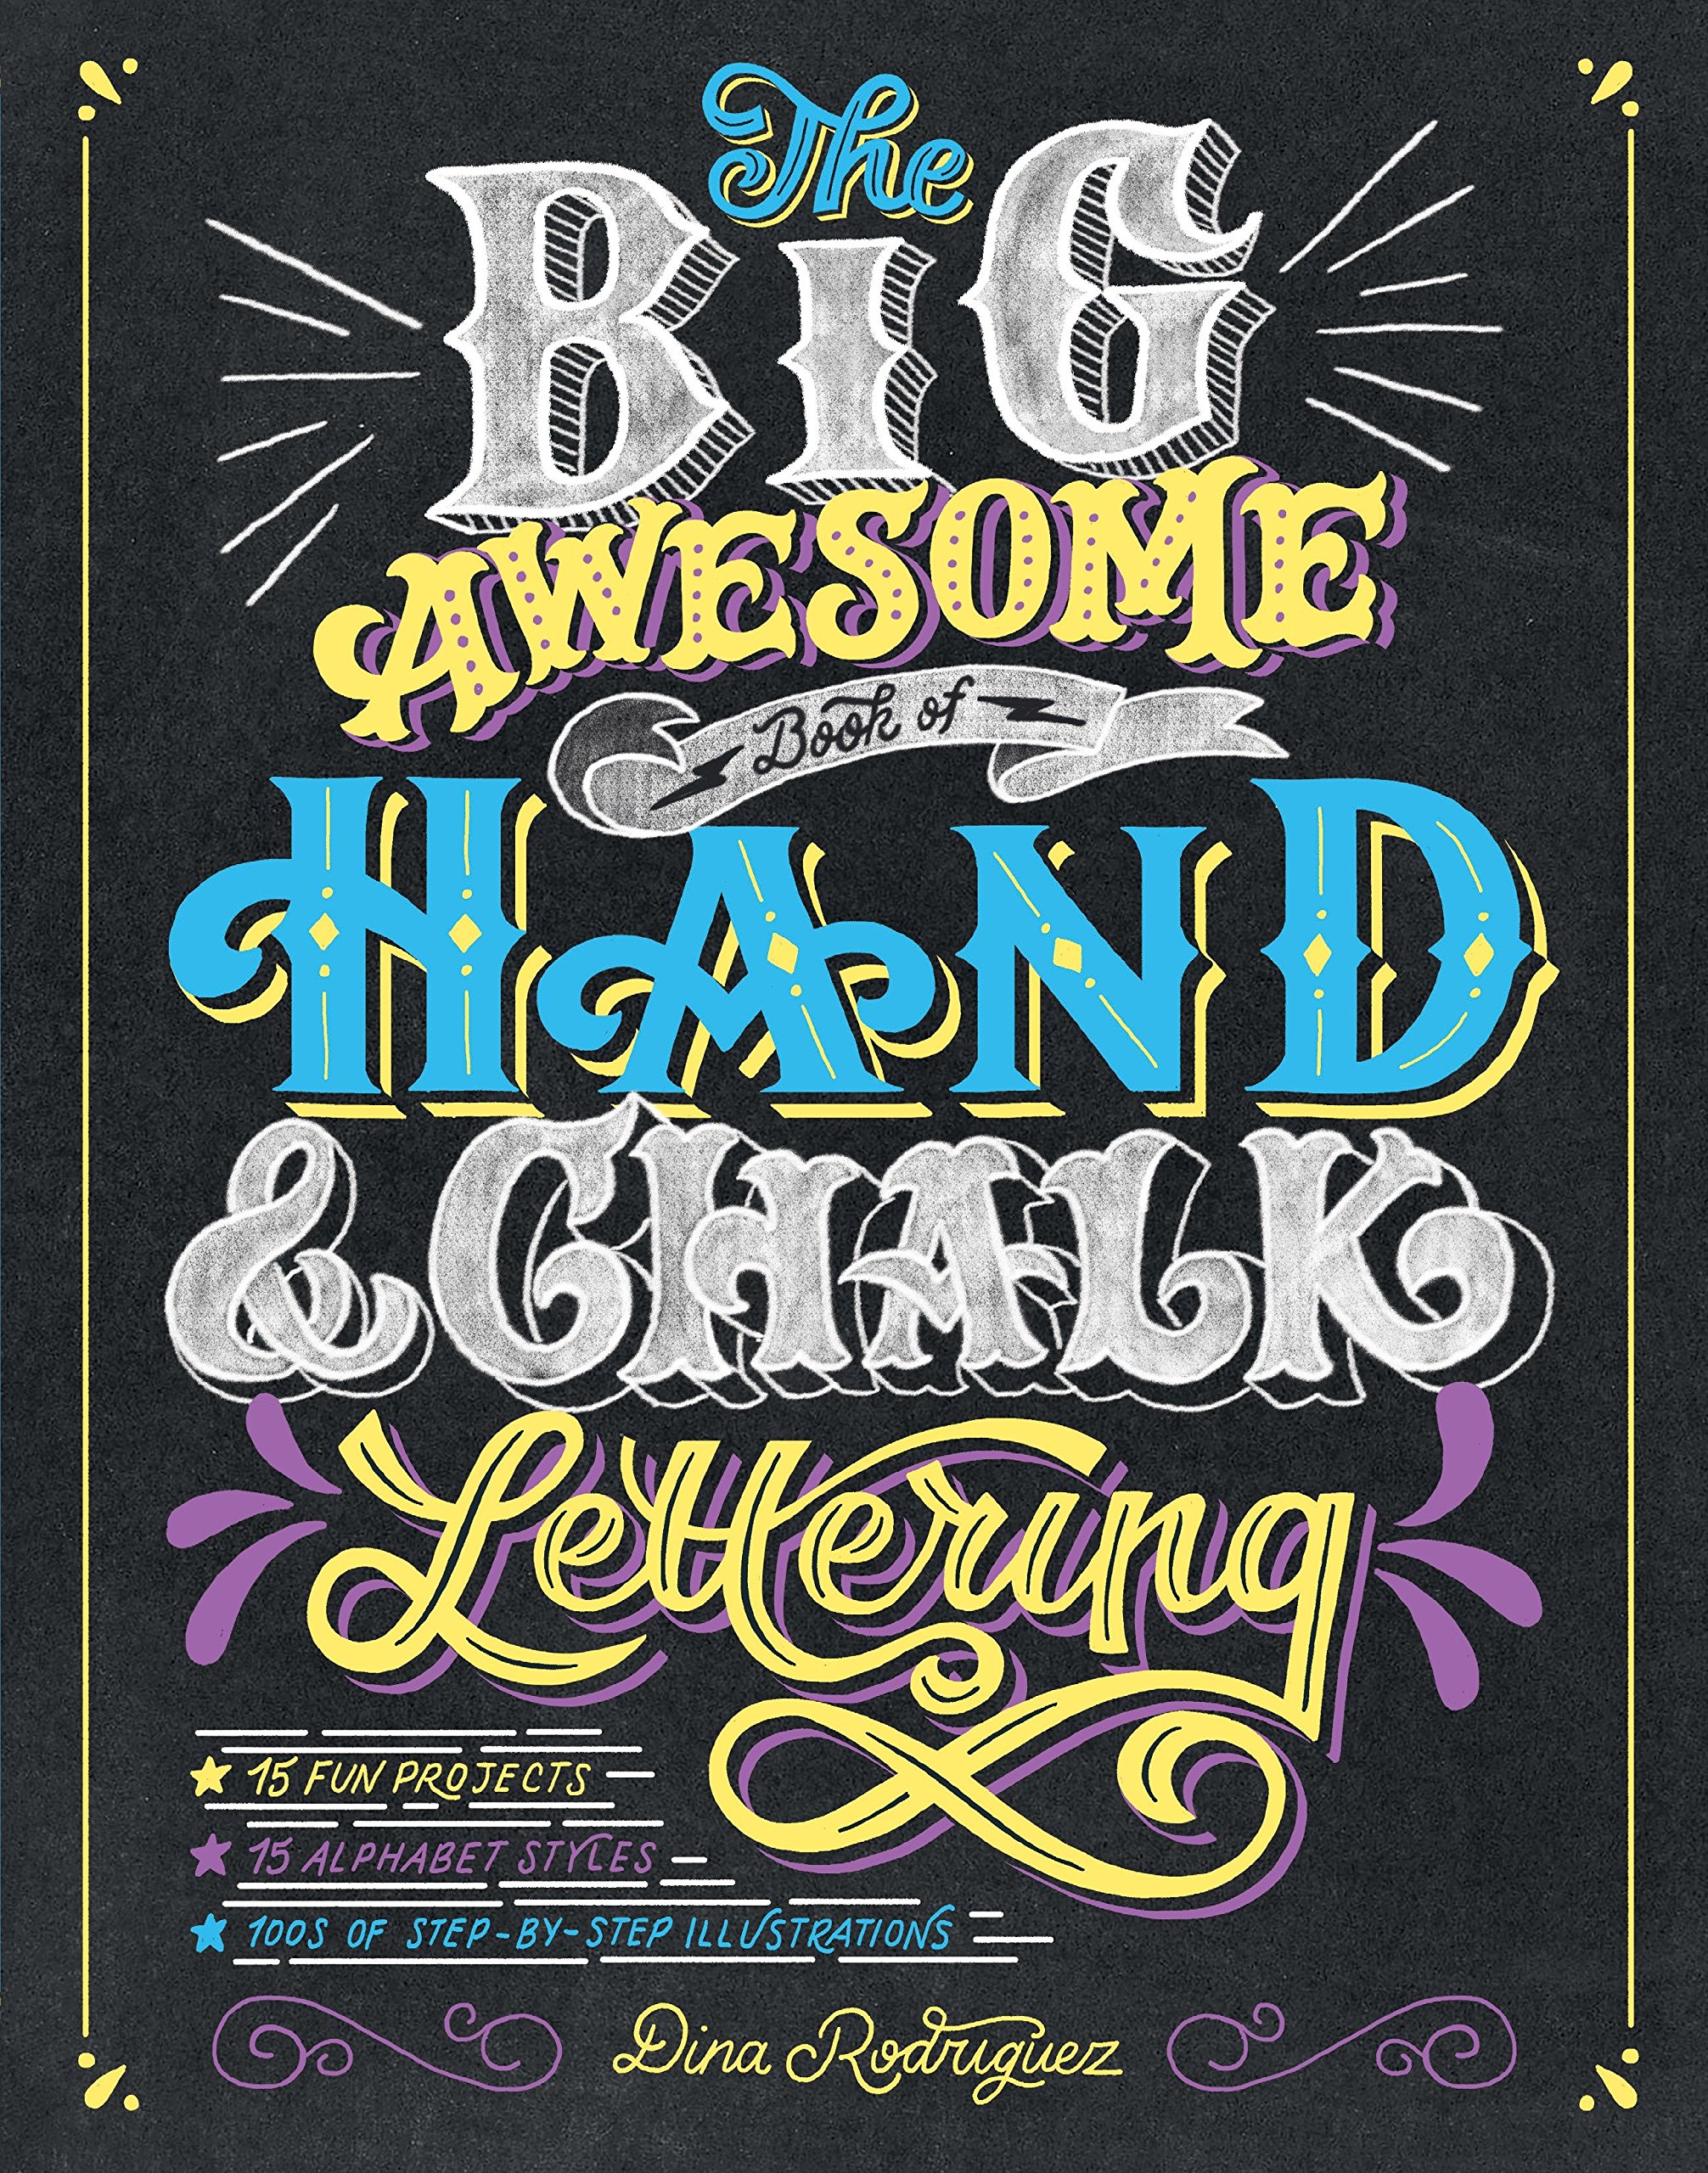 The
BIG
AWESOME
Book of
HAND
& CHALK
Lettering
15 FUN PROJECTS
15 ALPHABET STYLES
100S OF STEP-BY-STEP ILLUSTRATIONS
Dina Rodriguez